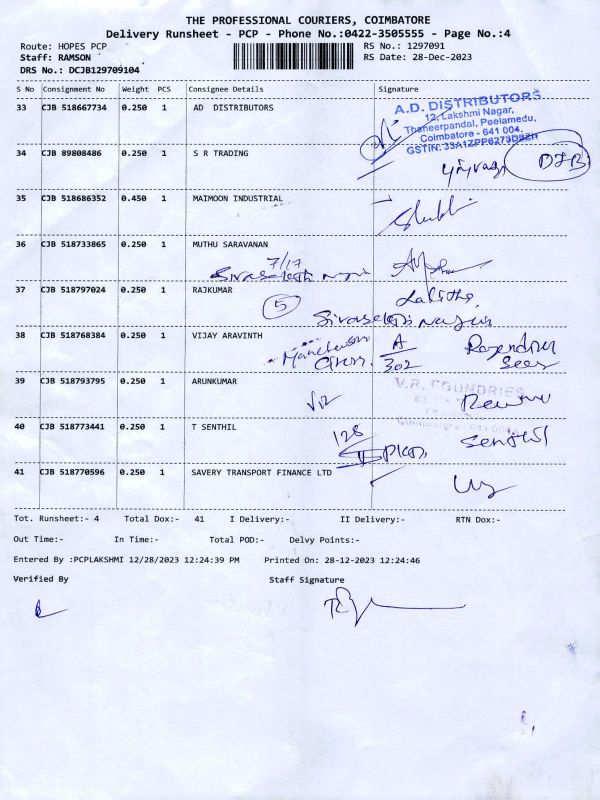 THE PROFESSIONAL COURIERS, COIMBATORE
Delivery Runsheet - PCP - Phone No.:0422-3505555 - Page No.:4
Route: HOPES PCP RS No.: 1297091
Staff: RAMSON RS Date: 28-Dec-2023
DRS No.: DCJB129709104
S No Consignment No Weight PCS Consignee Details Signature
33 CJB 518667734 0.250 1 AD DISTRIBUTORS
A.D. DISTRIBUTORS
12, Lakshmi Nagar,
Thaneerpandal, Peelamedu,
Coimbatore - 641 004.
34 CJB 89808486 0.250 1 S R TRADING
35 CJB 518686352 0.450 1 MAIMOON INDUSTRIAL
36 CJB 518733865 0.250 1 MUTHU SARAVANAN
7/17
37 CJB 518797024 0.250 1 RAJKUMAR
5
38 CJB 518768384 0.250 1 VIJAY ARAVINTH
A
302
39 CJB 518793795 0.250 1 ARUNKUMAR
V.R. FOUNDRIES
40 CJB 518773441 0.250 1 T SENTHIL
128 Senthil
41 CJB 518770596 0.250 1 SAVERY TRANSPORT FINANCE LTD
Tot. Runsheet:- 4 Total Dox:- 41 I Delivery:- II Delivery:- RTN Dox:-
Out Time:- In Time:- Total POD:- Delvy Points:-
Entered By :PCPLAKSHMI 12/28/2023 12:24:39 PM Printed On: 28-12-2023 12:24:46
Verified By Staff Signature